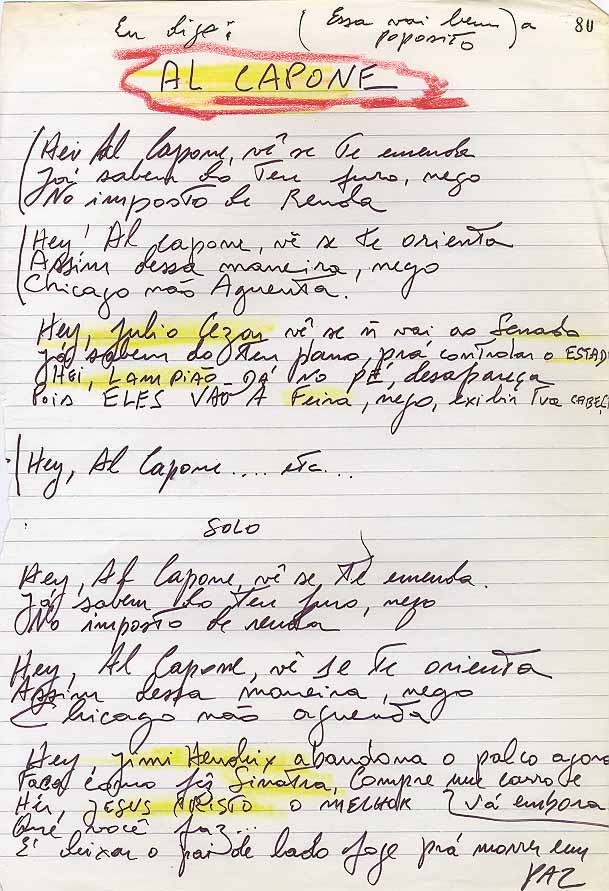 Eu digo: (Essa vai bem) a 80
poposito
AL CAPONE
Hei Al Capone, vê se Te emenda
Já sabem do Teu furo, nego
No imposto de Renda
Hey! Al capone, vê se Te orienta
Assim dessa maneira, nego
Chicago não Aguenta.
Hey, Julio Cezar vê se ñ vai ao Senado
Já sabem do Teu plano, prá controlar o ESTAD
HEI, LAMPIÃO DÁ NO PÉ, desapareça
Pois ELES VÃO À Feira, nego, exibir Tua CABEÇ
Hey, Al Capone.... etc...
SOLO
Hey, Al Capone, vê se Te emenda.
Já sabem do Teu furo, nego
No imposto de renda
Hey, Al Capone, vê se Te orienta
Assim dessa maneira, nego
Chicago não aguenta
Hey Jimi Hendrix abandona o palco agora
Faça como fêz Sinatra, Compre um carro e
Hei, JESUS CRISTO o MELHOR vá embora
Que você faz...
É deixar o pai de lado foge prá morrer em
PAZ